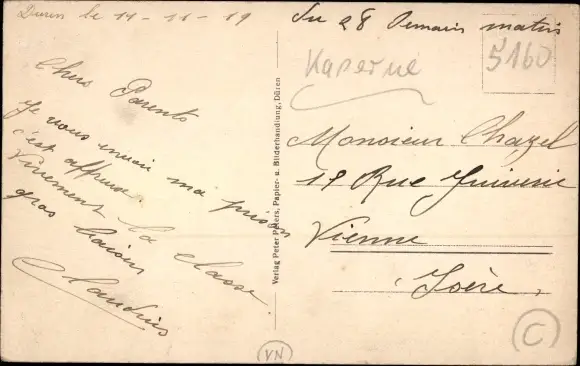 Düren le 11-11-19
Chers Parents
Je vous envoi ma prison
c'est affreux.
Vivement La classe.
gros baisers
Su 28 Demain matin
Kaserne
5160
Monsieur Chazel
18 Rue Juiverie
Vienne
Isère,
Verlag Peter Peters, Papier- u. Bilderhandlung, Düren
VN
C